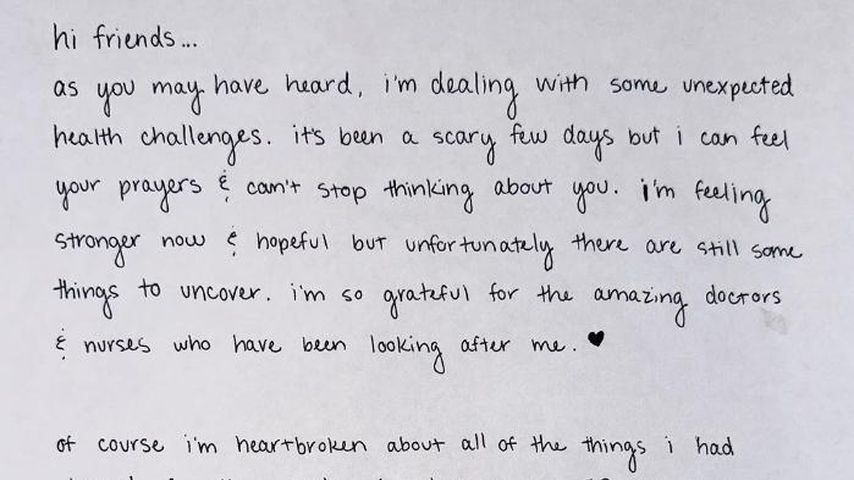 hi friends...
as you may have heard, i'm dealing with some unexpected
health challenges. it's been a scary few days but i can feel
your prayers & can't stop thinking about you. i'm feeling
stronger now & hopeful but unfortunately there are still some
things to uncover. i'm so grateful for the amazing doctors
& nurses who have been looking after me. ♥
of course i'm heartbroken about all of the things i had